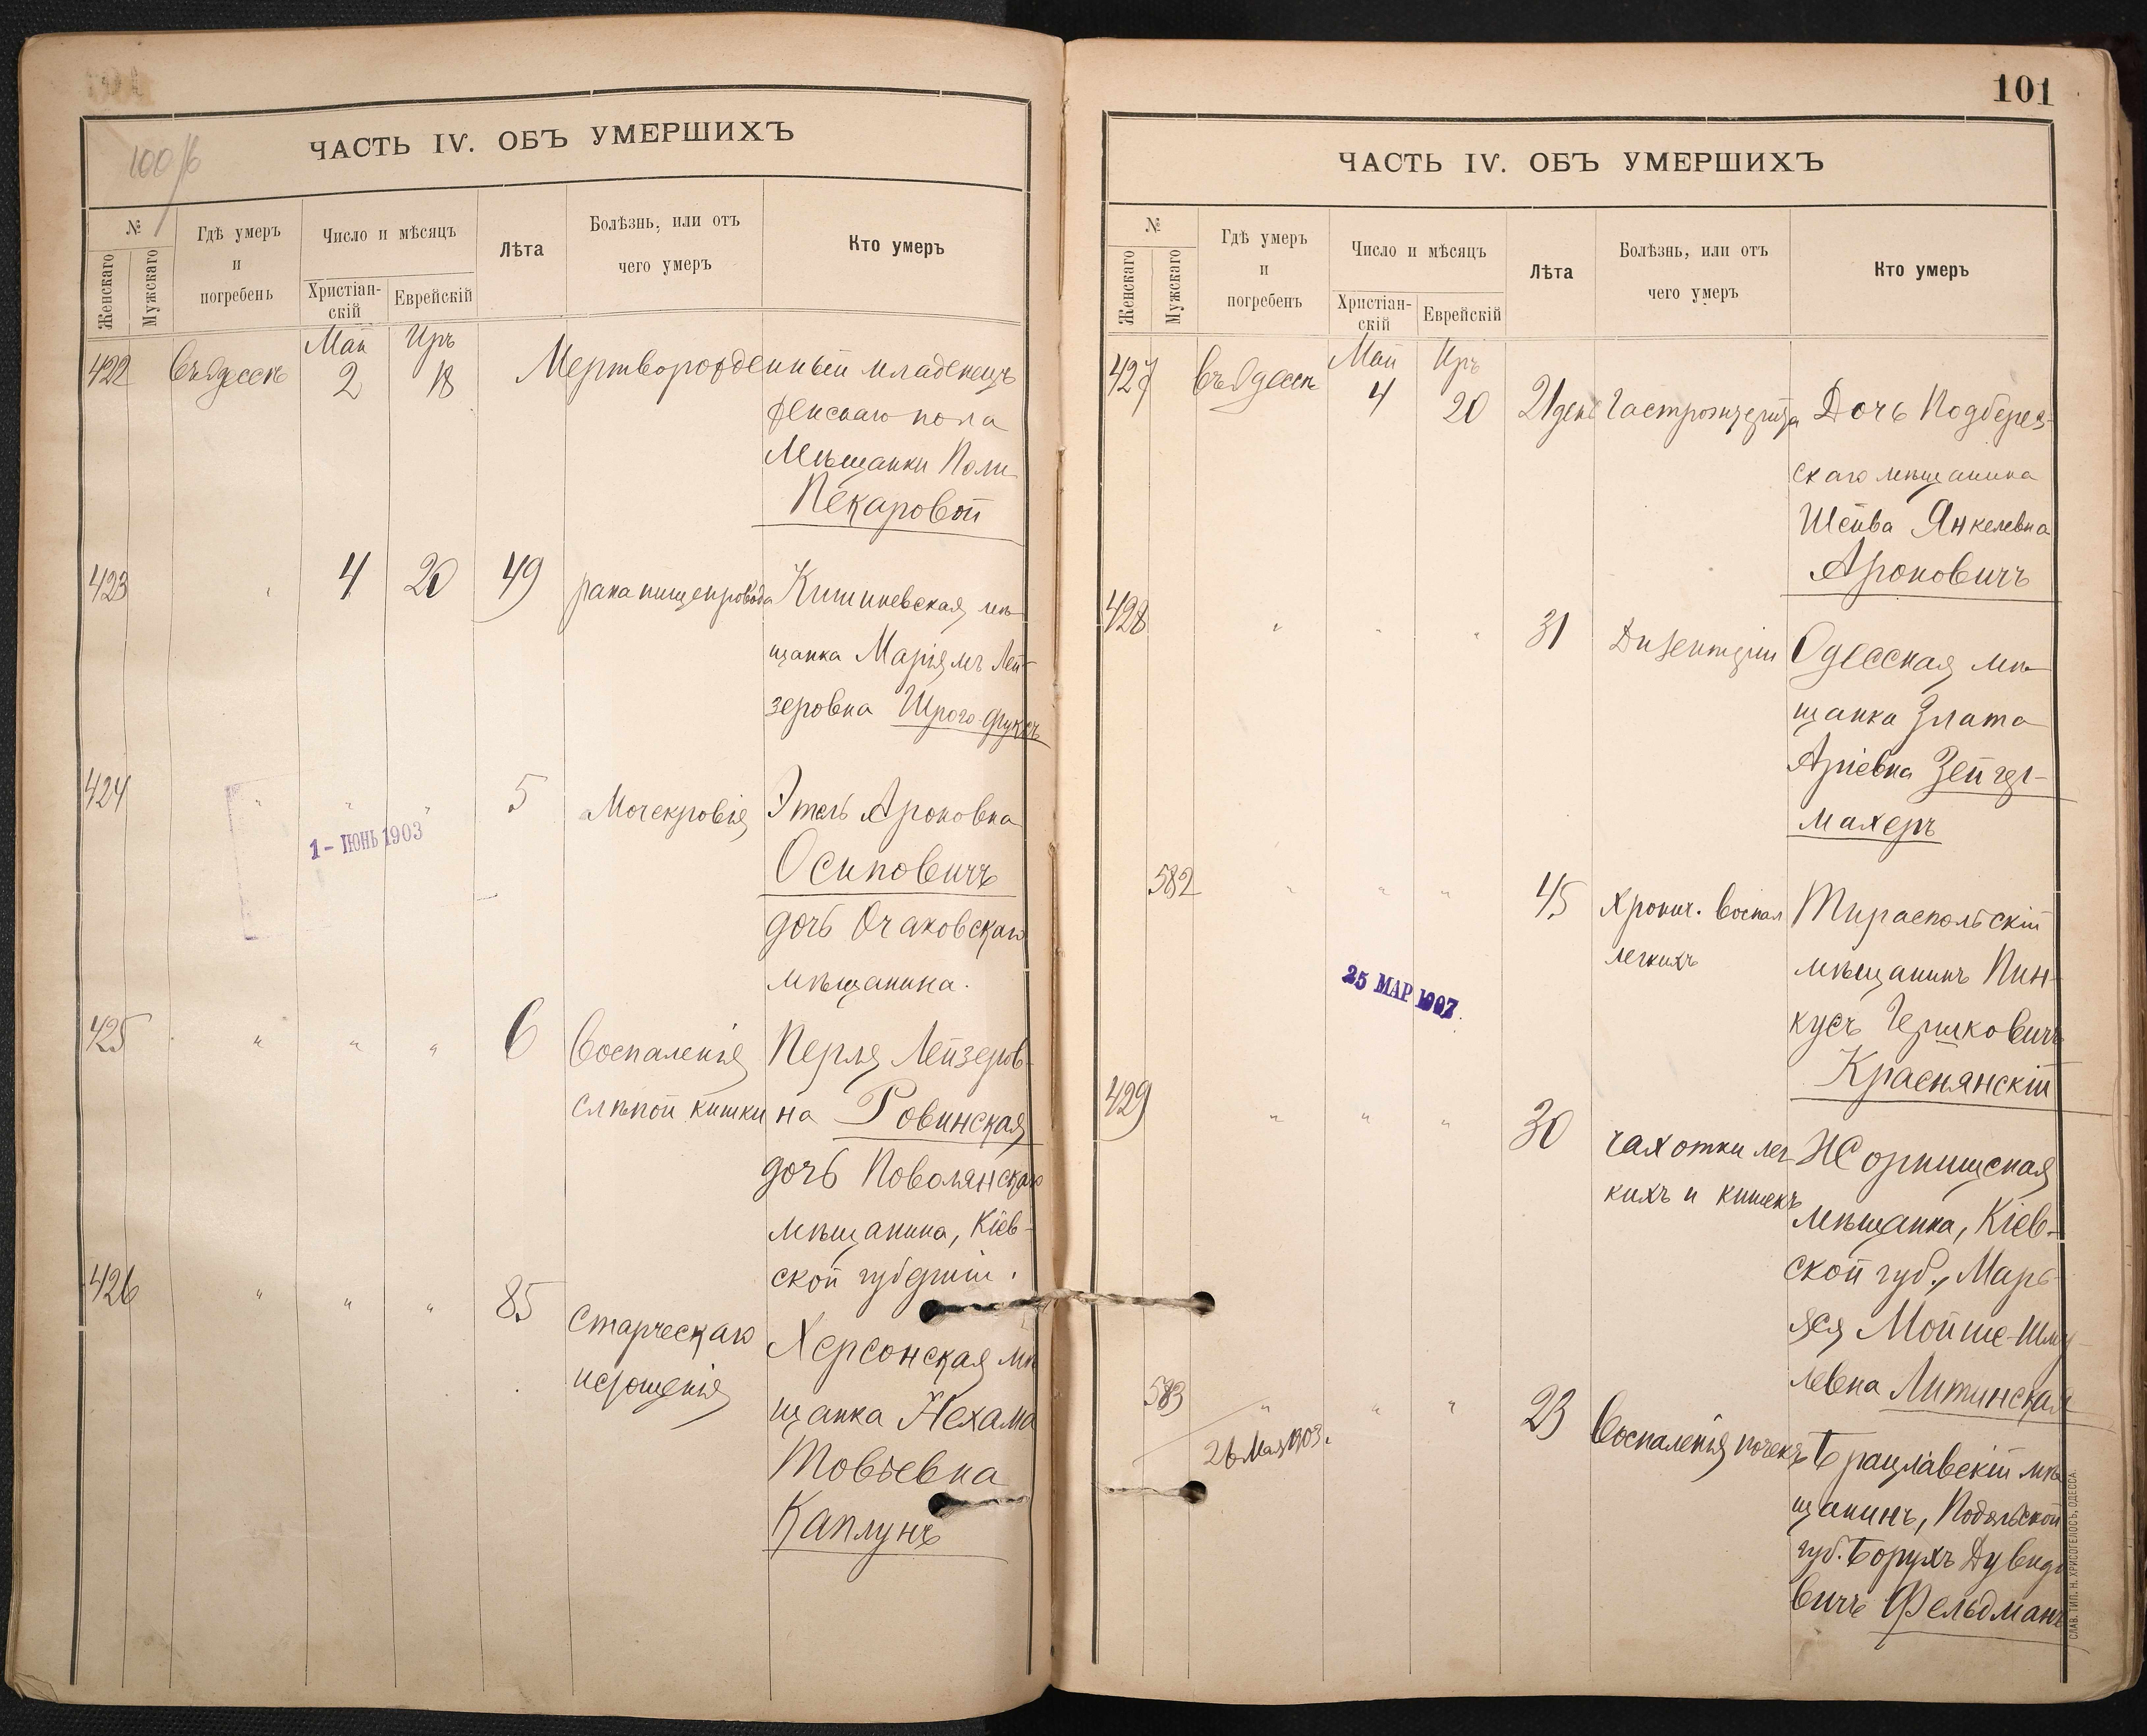 100/б
ЧАСТЬ IV. ОБЪ УМЕРШИХЪ
№
Женскаго
Мужскаго
Гдѣ умеръ
и
погребенъ
Число и мѣсяцъ
Христіан-
скій
Еврейскій
Лѣта
Болѣзнь, или отъ
чего умеръ
Кто умеръ
Май Иръ
422 Въ Одессѣ 2 18 Мертворожденный младенецъ
женскаго пола
Мѣщанки Поли
Пекаровой
423 " 4 20 49 рака пищепровода Кишиневская мѣ-
щанка Маріямъ Лей-
зеровна Шрого-Фуксъ
424 " " " 5 Мочекровія Этель Ароновна
1 - ІЮНЬ 1903
Осиповичъ
дочь Очаковскаго
мѣщанина.
425 " " " 6 Воспаленія Перля Лейзеров-
слѣпой кишки на Ровинская
дочь Поволянскаго
мѣщанина, Кіев-
ской губерніи.
426 " " " 85 Старческаго Херсонская мѣ
истощенія
щанка Нехама
Товьевна
Каплунъ
101
ЧАСТЬ IV. ОБЪ УМЕРШИХЪ
№
Женскаго
Мужскаго
Гдѣ умеръ
и
погребенъ
Число и мѣсяцъ
Христіан-
скій
Еврейскій
Лѣта
Болѣзнь, или отъ
чего умеръ
Кто умеръ
Май Иръ
427 Въ Одессѣ 4 20 21 день Гастроэнтерита Дочь Подберез-
скаго мѣщанина
Шейва Янкелевна
Ароновичъ
428 " " " 31 Дизентеріи Одесская мѣ-
щанка Злата
Аріевна Зейгер-
махеръ
582 " " " 45 Хронич. Воспал Тираспольскій
легкихъ
мѣщанинъ Пин-
25 МАР 1907
кусъ Гершковичъ
Краснянскій
429 " " " 30 чахотки лег Жорнищская
кихъ и кишекъ
мѣщанка, Кіев-
ской губ., Марь-
яся Мойше-Шму-
левна Литинская
583 " " " 23 Воспаленія почекъ Брацлавскій мѣ
26 Мая 1903.
щанинъ, Подольской
губ. Борухъ Дувидо
вичъ Фельдманъ
СЛАВ. ТИП. Н. ХРИСОГЕЛОСЪ, ОДЕССА.